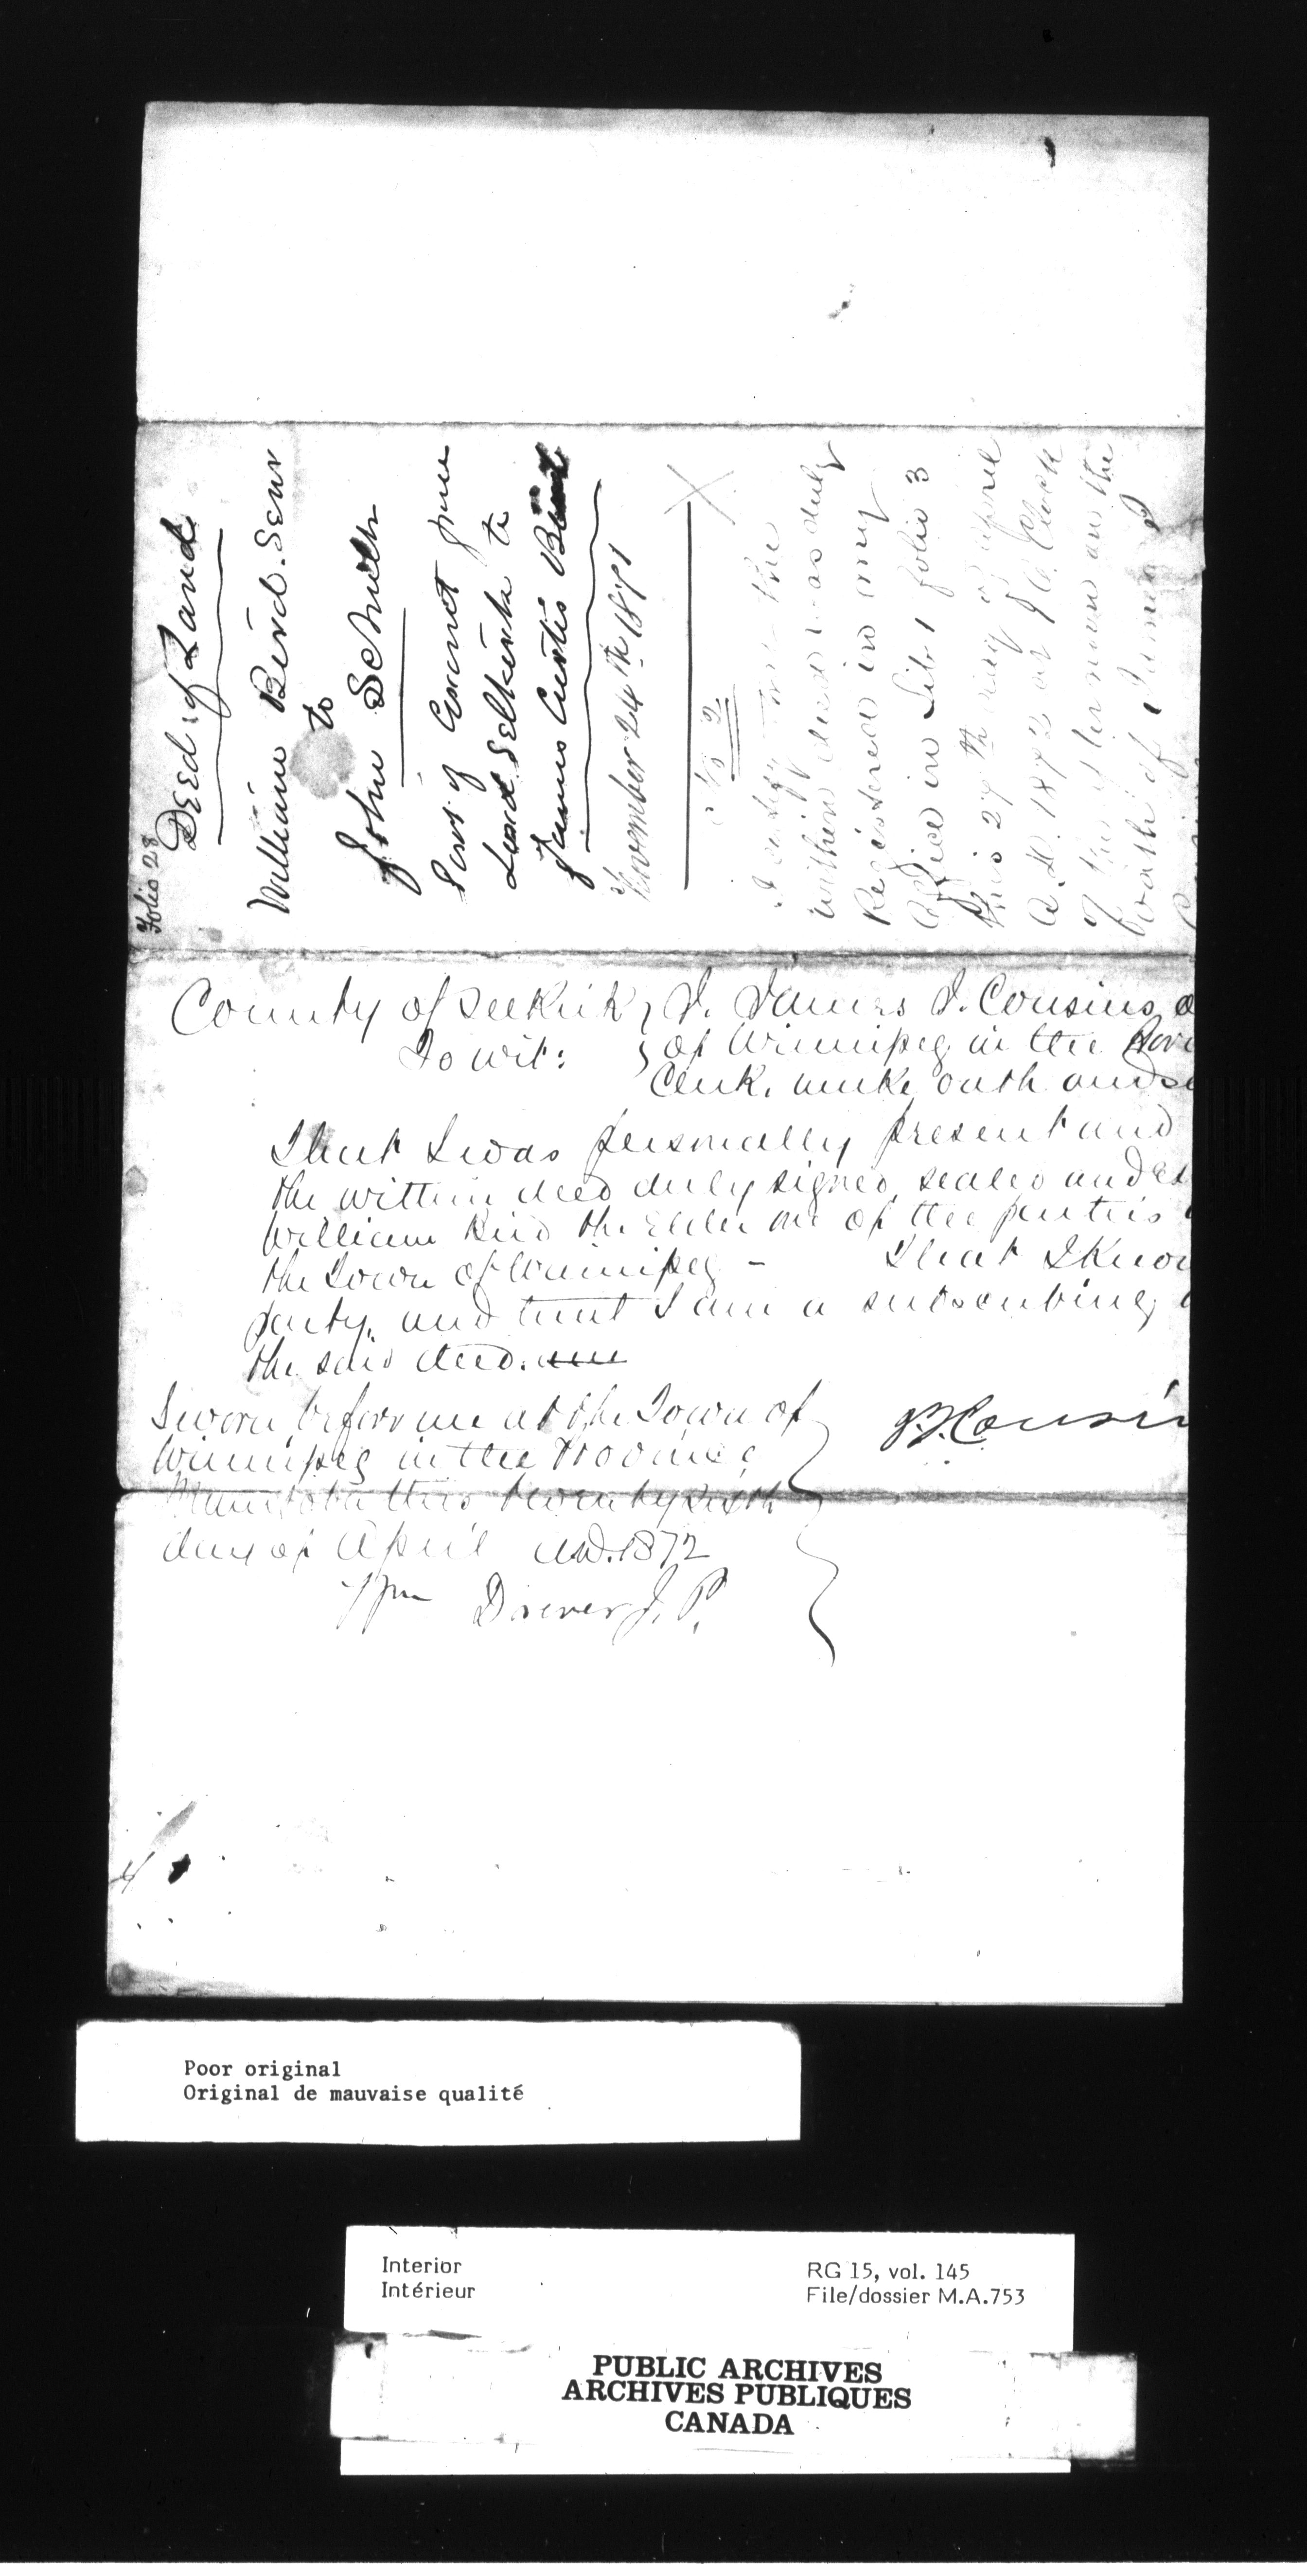 Folio 28
Deed of Land
William Bird. Senr
to
John Schultz
Lord Selkirk to
James Curtis Bird
November 24th 1871
No 2
I certify that the
within deed was duly
Registered in my
Office in Lib 1 folio 3
this 27th day of April
A.D. 1872 at O'Clock
forenoon on the
oath of James J
County of Selkirk } I, James J. Cousins, o
To wit: } of Winnipeg in the Prov
Clerk, make oath and s
That I was personally present and
the within deed duly signed sealed and ex
William Bird the Elder one of the parties
the Town of Winnipeg - That I know
party, and that I am a subscribing
the said deed.
Sworn before me at the Town of
Winnipeg in the Province
Manitoba this twenty sixth
day of April A.D. 1872
J.J. Cousin
Wm Drever J.P.
Poor original
Original de mauvaise qualité
Interior
Intérieur
RG 15, vol. 145
File/dossier M.A.753
PUBLIC ARCHIVES
ARCHIVES PUBLIQUES
CANADA